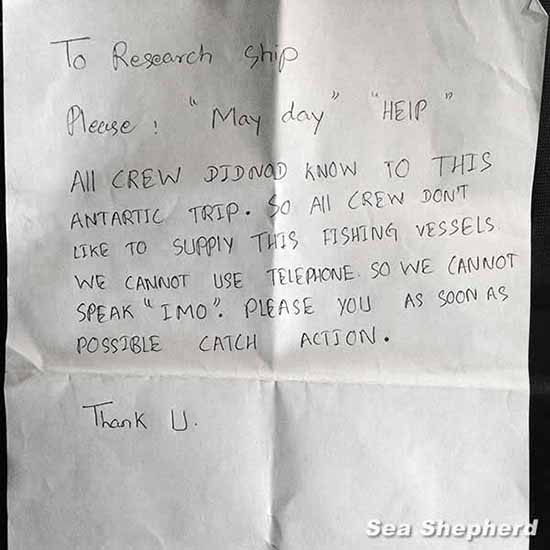 To Research Ship
Please! "May day" "HEIP"
All CREW DIDNOD KNOW TO THIS
ANTARTIC TRIP. SO All CREW DON'T
LIKE TO SUPPLY THIS FISHING VESSELS.
WE CANNOT USE TELEPHONE. SO WE CANNOT
SPEAK "IMO". PLEASE YOU AS SOON AS
POSSIBLE CATCH ACTION.
Thank U.
Sea Shepherd